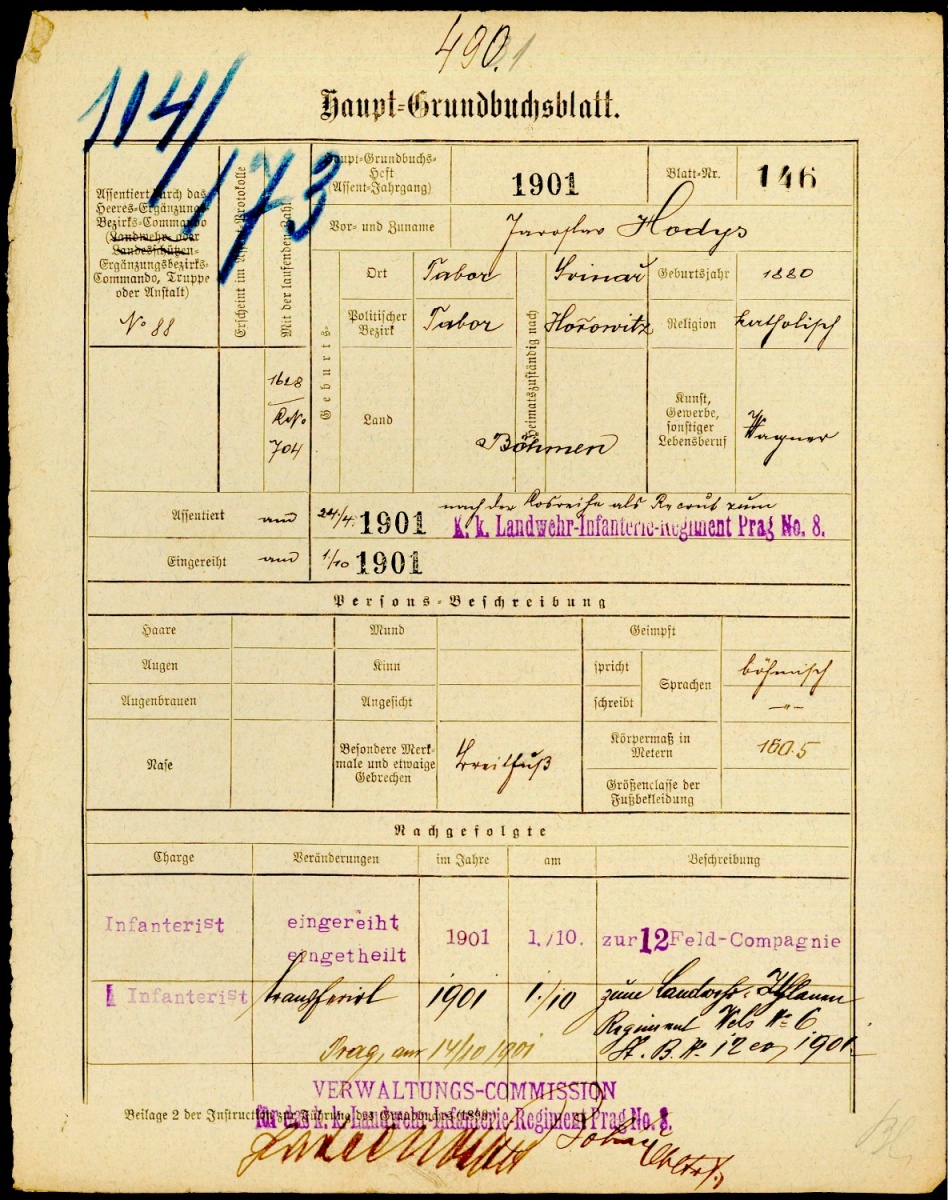 490.
114/173
Haupt-Grundbuchsblatt.
Assentiert durch das
Heeres-Ergänzungs-
Bezirks-Commando
(Landwehr- oder
Landesschützen-
Ergänzungsbezirks-
Commando, Truppe
oder Anstalt)
No 88
Erscheint im Assent-Protokolle
Mit der laufenden Zahl
1628
704
Haupt-Grundbuchs-
Heft
(Assent-Jahrgang)
1901
Blatt-Nr.
146
Vor- und Zuname
Jaroslav Hodys
Geburts-
Ort
Tabor
Heimatszuständig nach
Svinař
Geburtsjahr
1880
Politischer
Bezirk
Tabor
Hořowitz
Religion
katholisch
Land
Böhmen
Kunst,
Gewerbe,
sonstiger
Lebensberuf
Wagner
Assentiert am 24./4. 1901 nach der Losreihe als Recrut zum
K. k. Landwehr-Infanterie-Regiment Prag No. 8.
Eingereiht am 1/10 1901
Persons-Beschreibung
Haare
Mund
Geimpft
Augen
Kinn
spricht
Sprachen
böhmisch
Augenbrauen
Angesicht
schreibt
-"-
Nase
Besondere Merk-
male und etwaige
Gebrechen
Breitfuß
Körpermaß in
Metern
160.5
Größenclasse der
Fußbekleidung
Nachgefolgte
Charge Veränderungen im Jahre am Beschreibung
Infanterist eingereiht
eingetheilt 1901 1./10. zur 12 Feld-Compagnie
Infanterist transferirt 1901 1./10 zum Landwehr-Uhlanen
Regiment Wels No 6
Prag, am 14/10 1901
1901
VERWALTUNGS-COMMISSION
Beilage 2 der Instruction zur Führung des Grundbuches (1899).
für das k. k. Landwehr-Infanterie Regiment Prag No. 8.